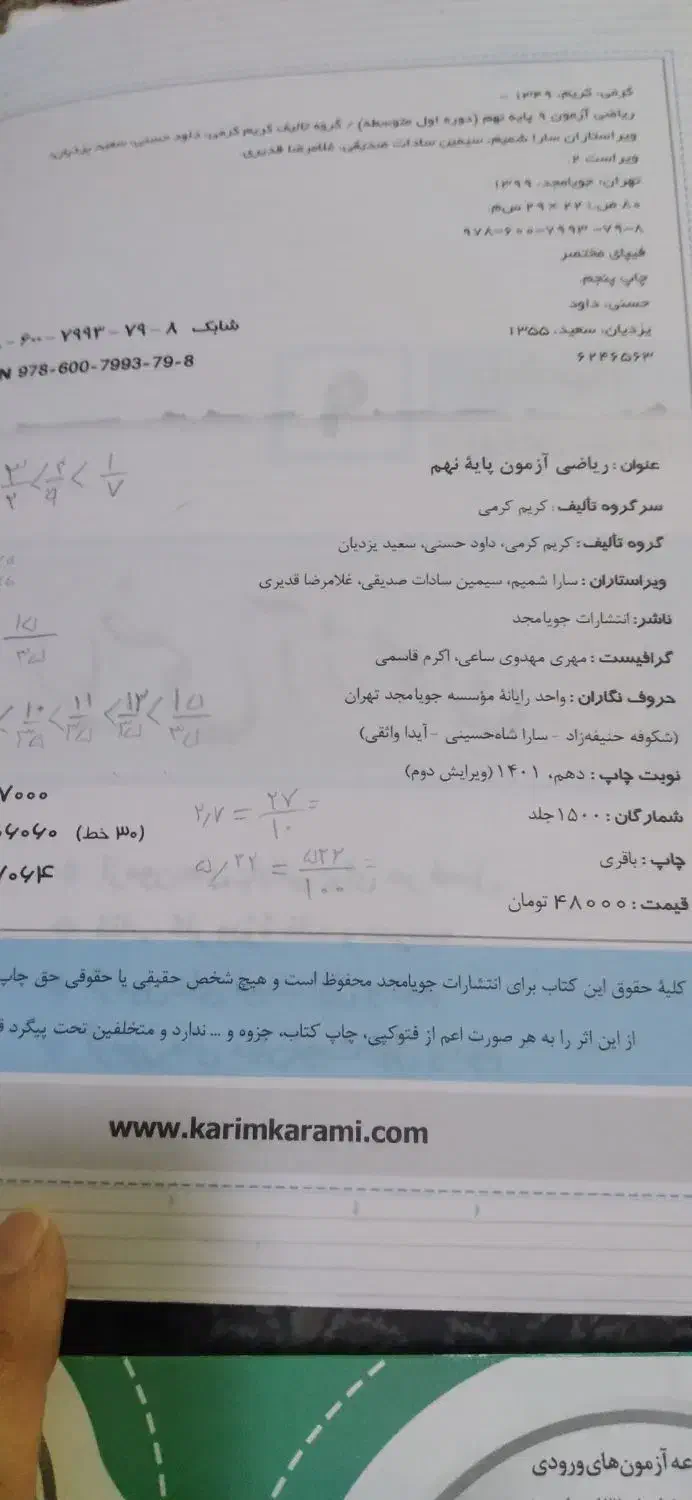 کرمی، کریم، ۱۳۴۹ -
ریاضی آزمون ۹ پایه نهم (دوره اول متوسطه) / گروه تالیف کریم کرمی، داود حسنی، سعید یزدیان،
ویراستاران سارا شمیم، سیمین سادات صدیقی، غلامرضا قدیری
ویراست ۲.
تهران: جویامجد، ۱۳۹۹
۸۰ ص.؛ ۲۲ × ۲۹ س م.
۹۷۸-۶۰۰-۷۹۹۳-۷۹-۸
فیپای مختصر
چاپ پنجم
حسنی، داود
یزدیان، سعید، ۱۳۵۵
۶۲۴۶۵۶۳
شابک ۸ - ۷۹ - ۷۹۹۳ - ۶۰۰ -
N 978-600-7993-79-8
عنوان: ریاضی آزمون پایهٔ نهم
سرگروه تألیف: کریم کرمی
گروه تألیف: کریم کرمی، داود حسنی، سعید یزدیان
ویراستاران: سارا شمیم، سیمین سادات صدیقی، غلامرضا قدیری
ناشر: انتشارات جویامجد
گرافیست: مهری مهدوی ساعی، اکرم قاسمی
حروف نگاران: واحد رایانهٔ مؤسسه جویامجد تهران
(شکوفه حنیفه‌زاد - سارا شاه‌حسینی - آیدا واثقی)
نوبت چاپ: دهم، ۱۴۰۱ (ویرایش دوم)
شمارگان: ۱۵۰۰ جلد
چاپ: باقری
قیمت: ۴۸۰۰۰ تومان
۷۰۰۰
۶۰۶۰ (۳۰ خط)
۰۶۴
۱/۷
۱۵/۳۵
۱۰/۳۵ < ۱۱/۳۵ < ۱۳/۳۵ < ۱۵/۳۵
۲٫۷ = ۲۷/۱۰ =
۵٫۲۲ = ۵۲۲/۱۰۰ =
کلیهٔ حقوق این کتاب برای انتشارات جویامجد محفوظ است و هیچ شخص حقیقی یا حقوقی حق چاپ
از این اثر را به هر صورت اعم از فتوکپی، چاپ کتاب، جزوه و ... ندارد و متخلفین تحت پیگرد
www.karimkarami.com
عه آزمون‌های ورودی